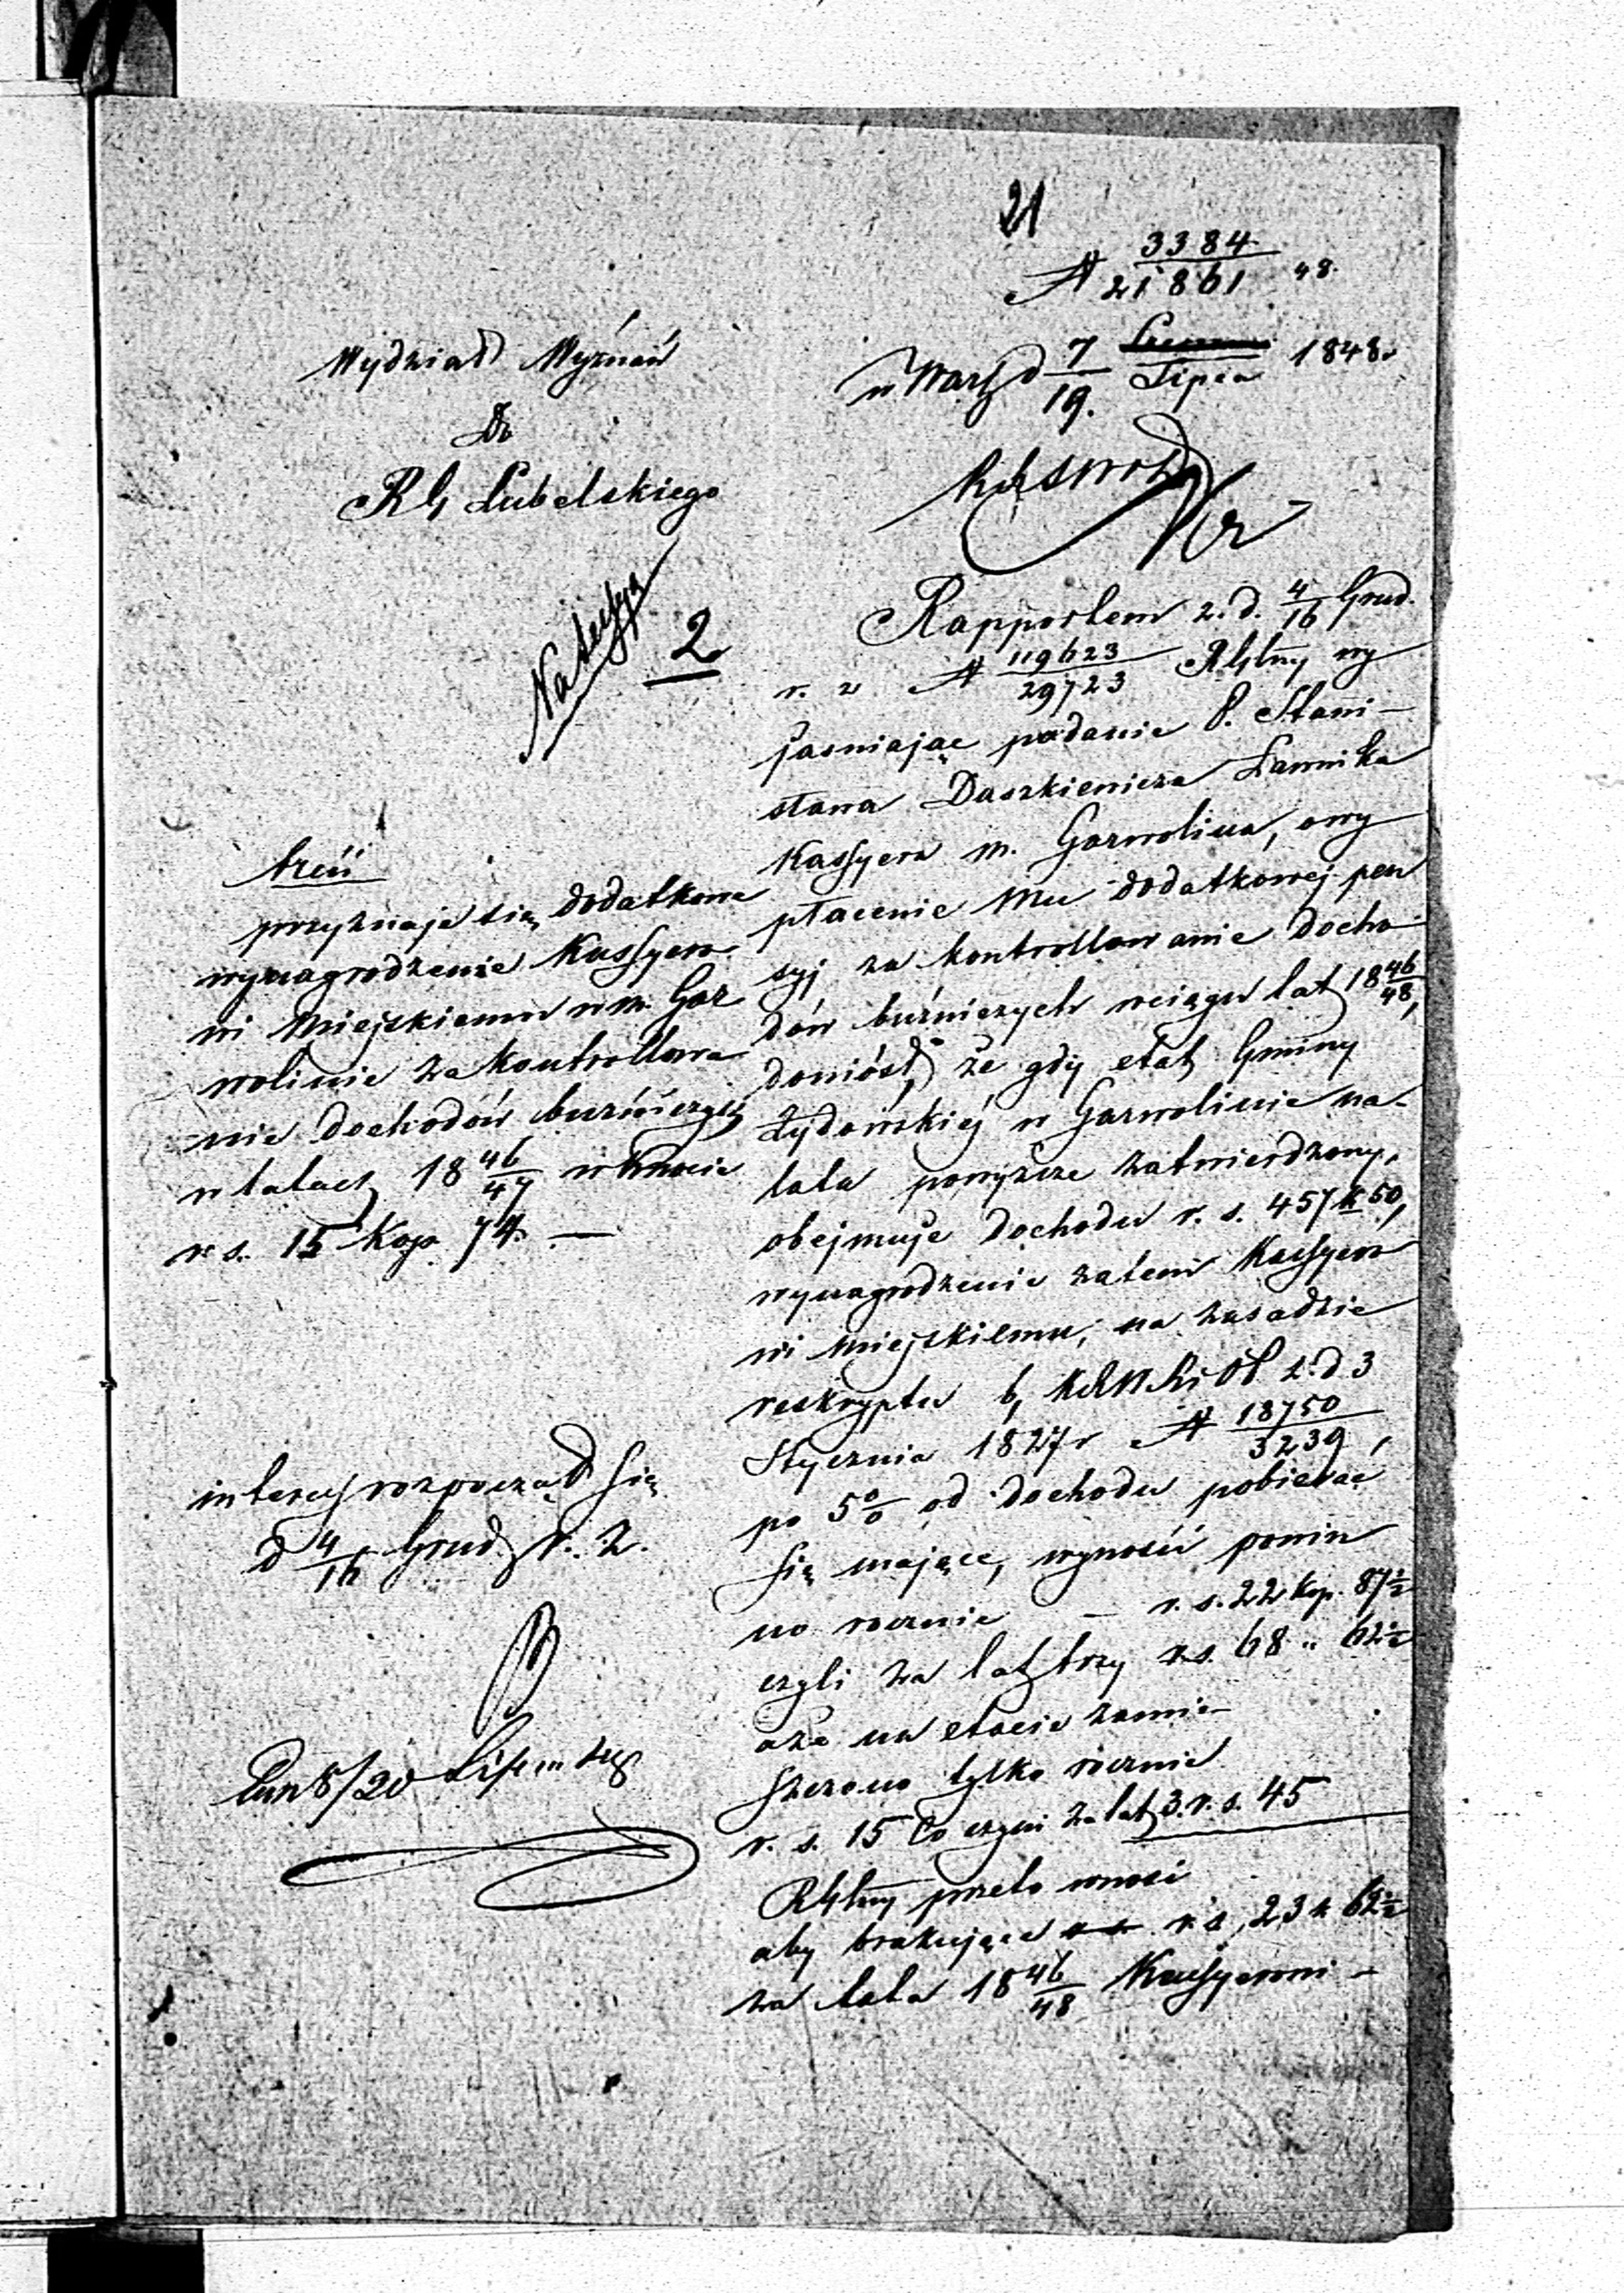 21
№ 3384/21861 48.
w Warsz d 7/19. Czerwca Lipca 1848.
Wydział Wyznań
Do
RG Lubelskiego
KRSW
2
Rapportem z. d. 4/16 Grud.
r. z № 119623/29723 RGlny wy
jasniając podanie P. Stani-
sława Daszkiewicza Ławnika
Kassyera m. Garwolina, o wy
płacenie mu dodatkowej pen
syj za kontrollowanie docho
dów bużniczych wciągu lat 18 46/48,
doniósł, że gdy etat Gminy
Żydowskiej w Garwolinie na
lata powyższe zatwierdzony,
obejmuje dochodu r. s. 457 k 50,
wynagrodzenie zatem Kassyero
wi miejskiemu, na zasadzie
reskryptu b, KRWRiOP z. d 3
Stycznia 1827 r № 18750/3239,
po 5 % od dochodu pobierać
się mające, wynosić powin
no rocznie – r. s. 22 kop. 87½
czyli za lat trzy r.s. 68 „ 62½
a że na etacie zamie-
szczono tylko rocznie
r. s. 15 Co czyni za lat 3. r. s. 45
RGlny przeto wnosi
aby brakujące r. s. 23 k 62½
za lata 18 46/48 Kassyerowi –
treść
przyznaje się dodatkowe
wynagrodzenie Kassyero
wi Miejskiemu w m. Gar
wolinie za kontrollowa
nie dochodów bużniczych
w latach 18 46/47 w kwocie
r s. 15 Kop. 74. —
interes rozpoczął się
d 4/16 Grud. r. z.
8/20 Lip